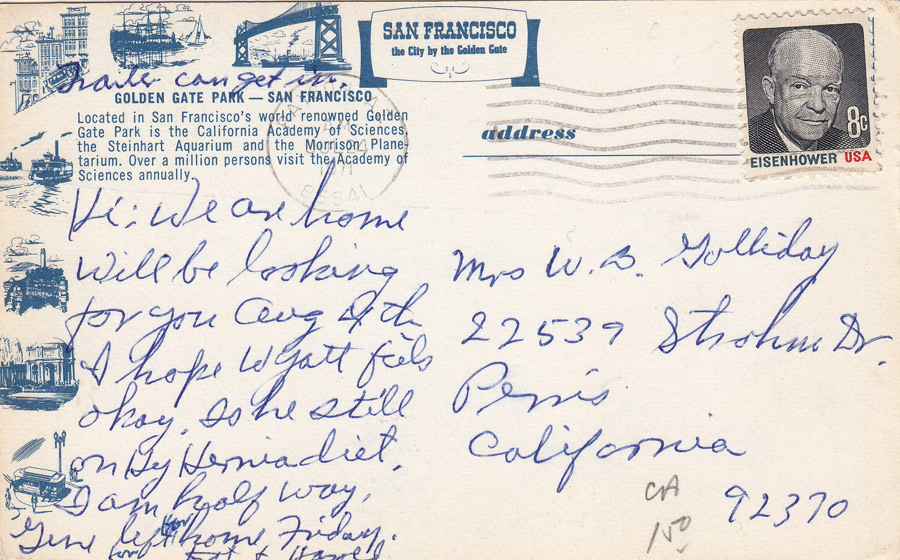 SAN FRANCISCO
the City by the Golden Gate
Trailer can get in.
GOLDEN GATE PARK — SAN FRANCISCO
Located in San Francisco's world renowned Golden
Gate Park is the California Academy of Sciences,
the Steinhart Aquarium and the Morrison Plane-
tarium. Over a million persons visit the Academy of
Sciences annually.
address
8c
EISENHOWER USA
Hi: We are home
will be looking
for you Aug 4th
I hope Wyatt feels
okay. Is he still
on Hy Hernia diet.
I am half way.
Gene left home Friday.
for
Mrs W. B. Golliday
22539 Strohm Dr.
Perris
California
92370
CA
150